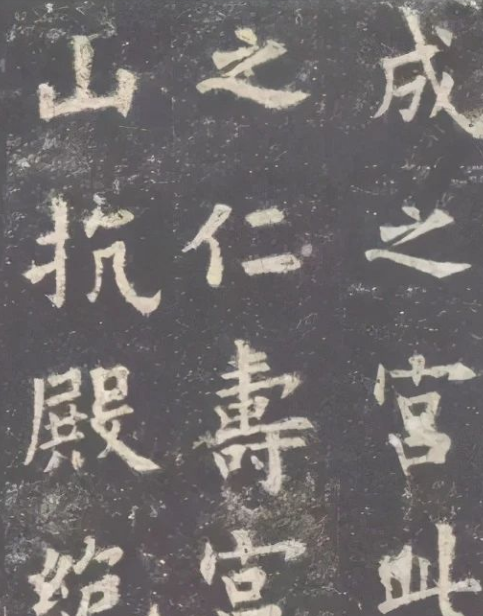 成之宮此
之仁壽宮
山抗殿絶